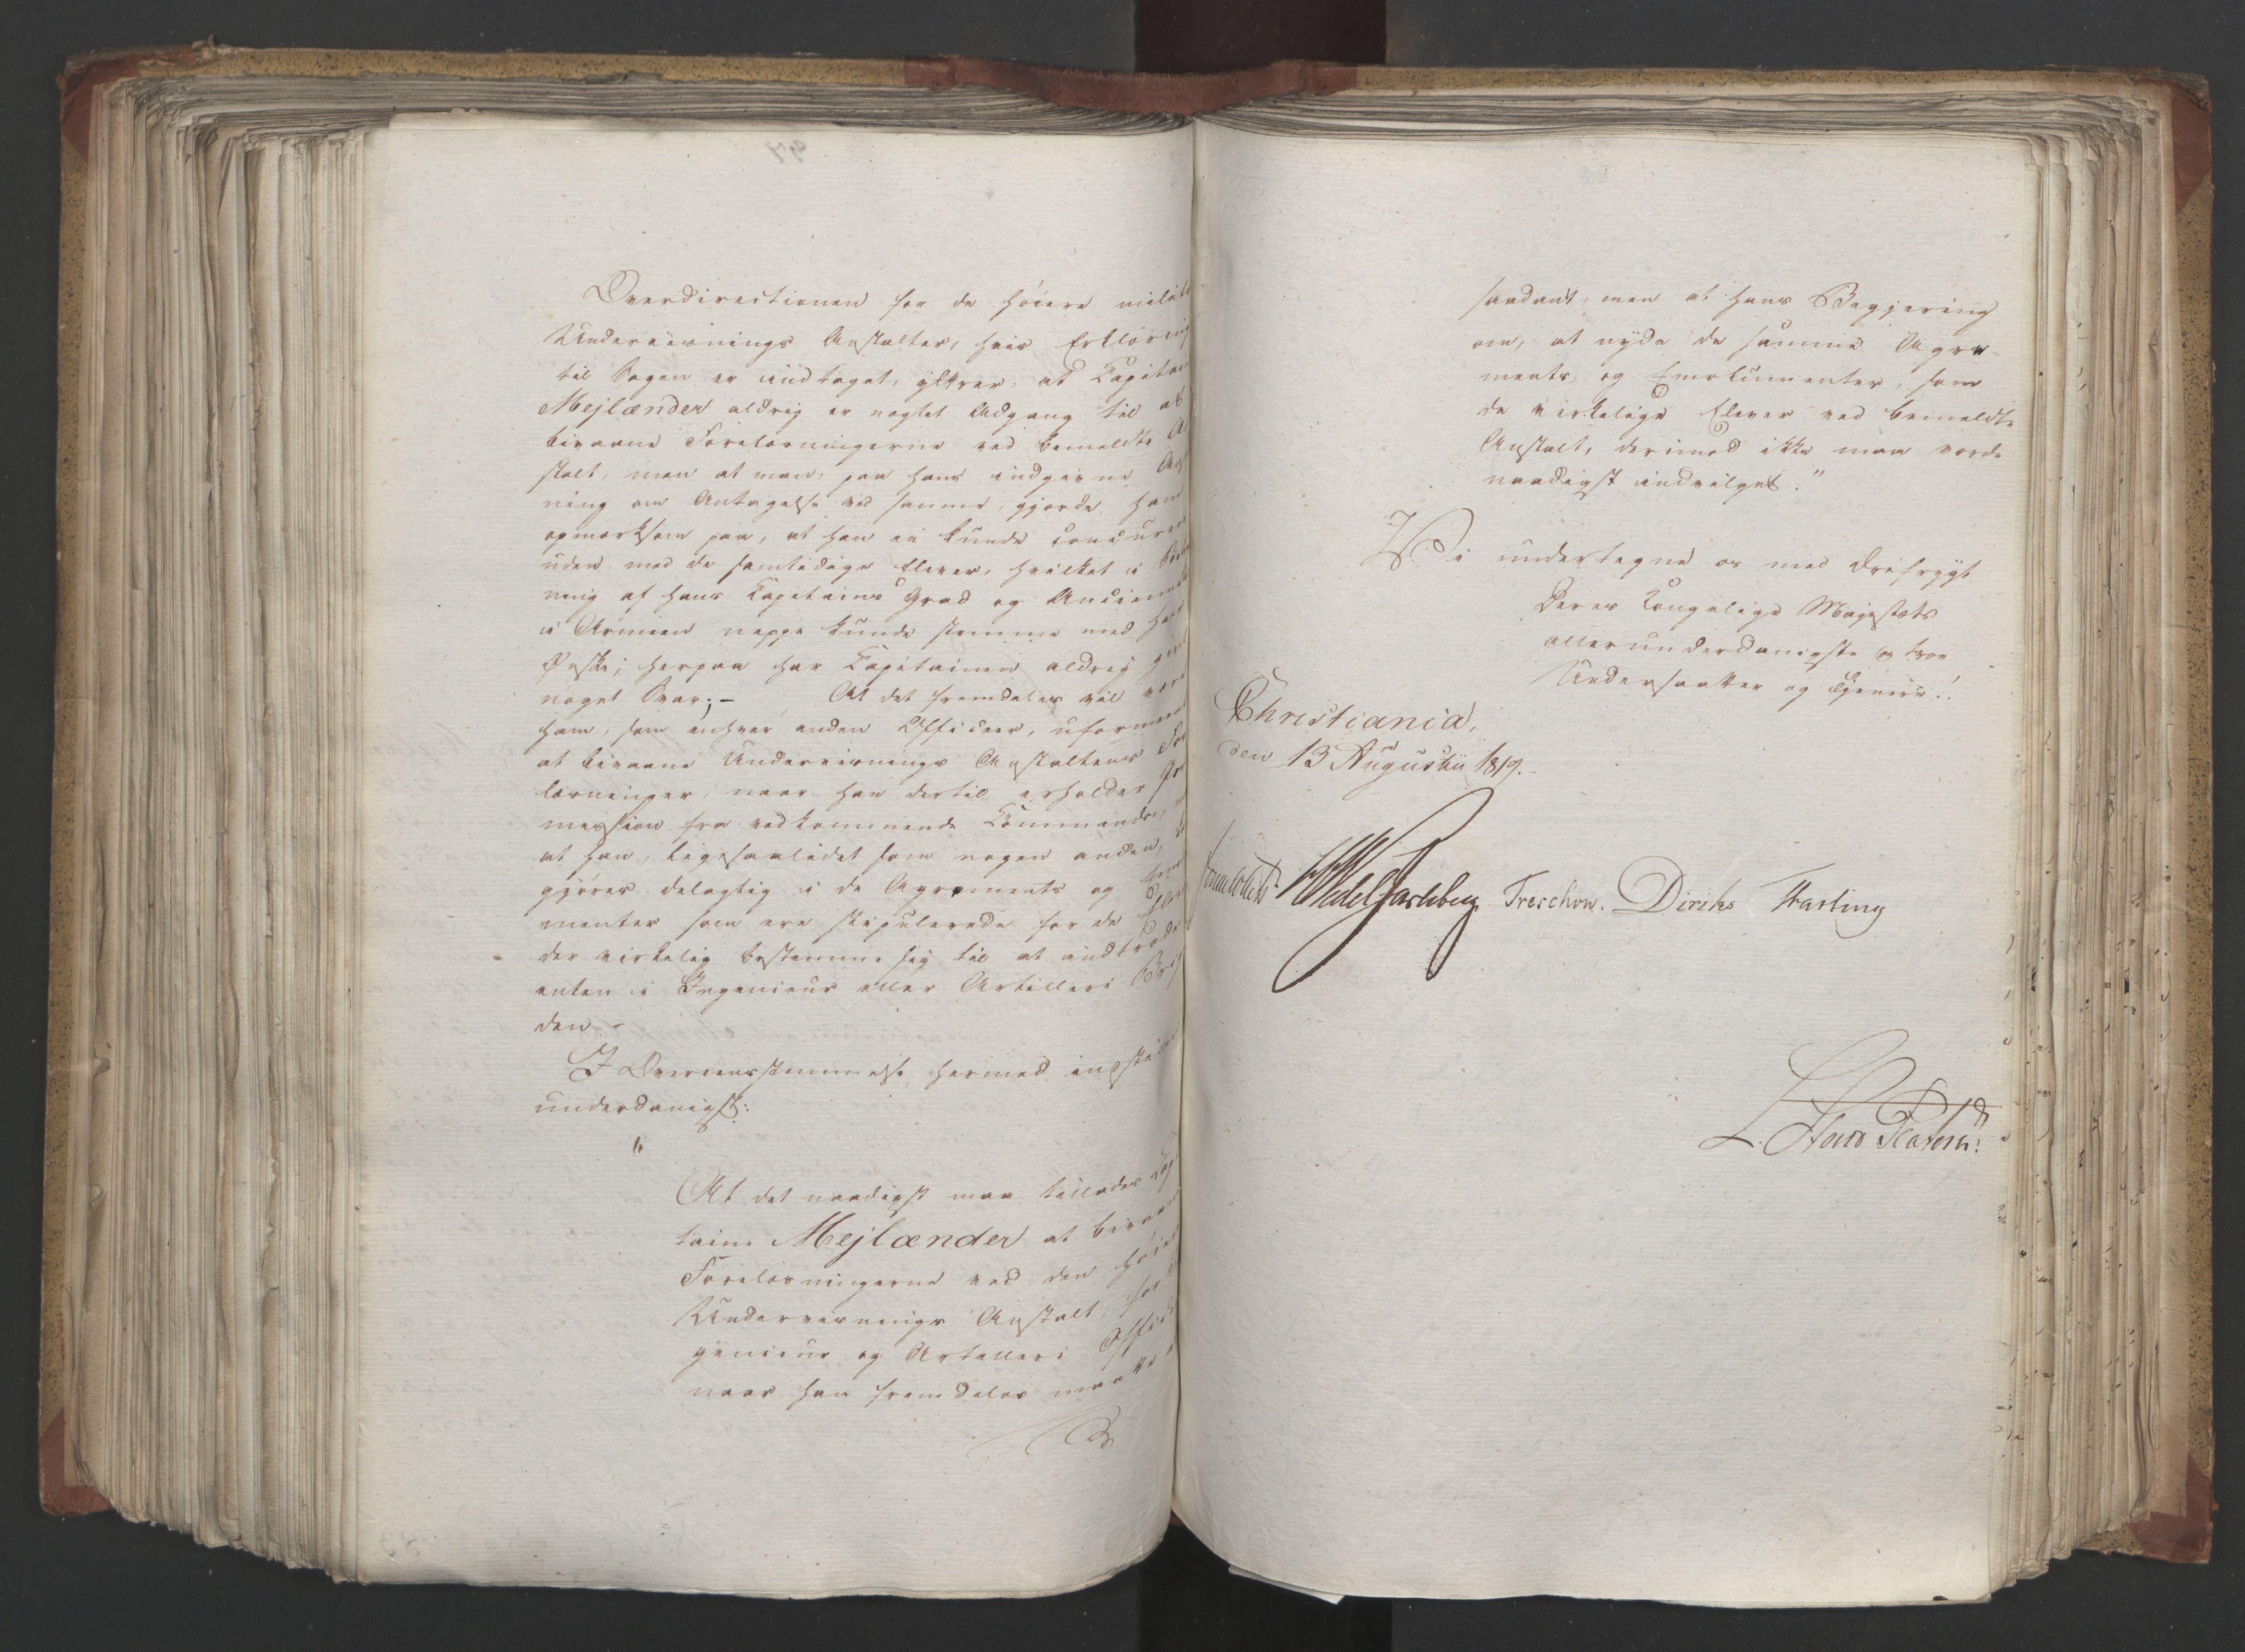 Overdirectionen for de høiere milit
Underviisnings Anstalter, hvis Erklæring
til Sagen er indtaget, yttrer: at Capitai
Mejlænder aldrig er nægtet Adgang til at
bivaane Forelæsningerne ved bemeldte A
stalt, men at man, paa hans indgivne Ans
ning om Antagelse ved samme, gjorde ham
opmærksom paa, at han ei kunde concurere
uden med de samtidige Elever, hvilket i
ning af hans Capitains Grad og Anciennit
i Armeen neppe kunde stemme med hans
Ønske; herpaa har Capitainen aldrig give
noget Svar; – At det fremdeles vil være
ham, som enhver anden Officeer, uformeent
at bivaane Underviisnings Anstaltens For
læsninger, naar han dertil erholder Per
mission fra vedkommende Commando,
at han, ligesaalidet som nogen anden,
gjøres delagtig i de Agrements og Emo
menter som ere stipulerede for de Elev
der virkelig bestemme sig til at indtræde
enten i Ingenieur eller Artilleri Brig
den. –
I Overeensstemmelse hermed indstill
underdanigst:
"
At det naadigst maa tillades Cap
taine Mejlænder at bivaane
Forelæsningerne ved den høier
Underviisnings Anstalt, for
genieur og Artilleri Offic
naar han fremdeles maatte
saadant, men at hans Begjering
om, at nyde de samme Agre-
ments og Emolumenter, som
de virkelige Elever ved bemeldte
Anstalt, derimod ikke maa vorde
naadigst indvilget."
Vi undertegne os med Ærefrygt
Deres Kongelige Majestæts
allerunderdanigste og troe
Undersaatter og Tjenere!
Christiania,
den 13 Augustii 1819.
Wedel Jarlsberg Treschow. Diriks Fasting